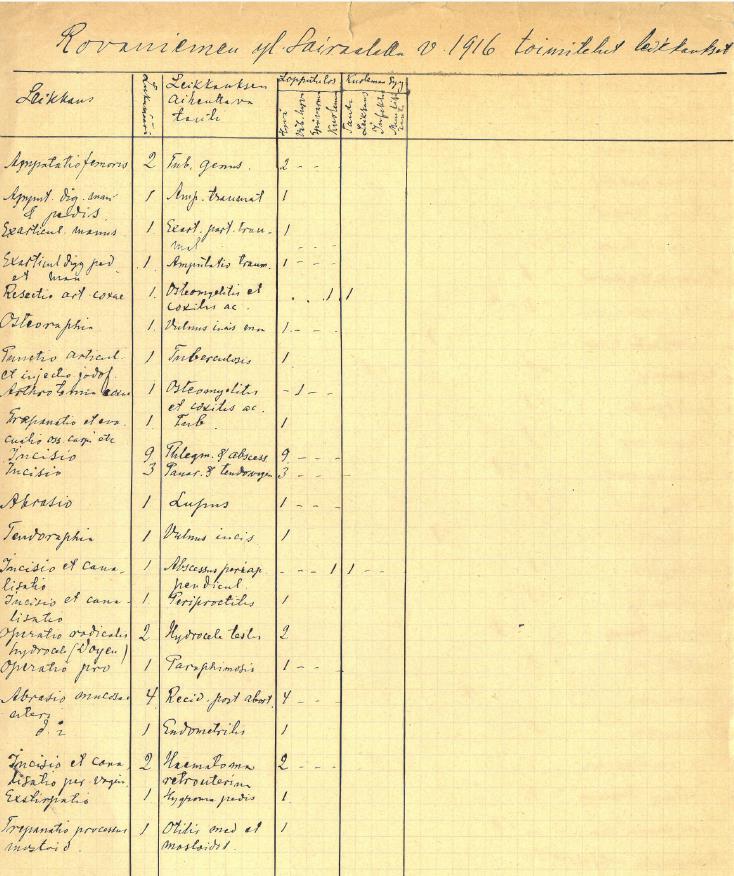 Rovaniemen yl. Sairaalalla v. 1916 toimitetut leikkaukset
Leikkaus Lukumäärä Leikkauksen aiheuttava tauti Lopputulos Kuoleman syy
Kuollut Tauti Leikkaus
Amputatio femoris 2 Tub. genus. 2 - -
Amput. dig. man 1 Amp. traumat 1
& pedis.
Exarticul. manus 1 Exart. part. trau-
mat 1 - - -
Exarticul digg ped 1 Amputatio traum. 1 - - -
et man
Resectio art coxae 1. Osteomyelitis et . . 1 1
coxitis ac.
Osteoraphia 1. Vulnus incis man 1. - - -
Punctio articul. 1 Tuberculosis 1
et injectio jodof.
Arthrotomia coxae 1 Osteomyelitis - 1 - -
et coxitis ac.
Trepanatio et eva- 1 Tub. 1
cuatio oss. carpi etc
Incisio 9 Phlegm. & abscess 9 - - -
Incisio 3 Panar. & tendovagin 3 - - -
Abrasio 1 Lupus 1 - - -
Tendoraphia 1 Vulnus incis 1
Incisio et cana- 1 Abscessus periap - - - 1 1 - -
lisatio pendicul
Incisio et cana- 1 Periproctitis 1
lisatio
Operatio radicalis 2 Hydrocele testis 2
hydrocel (Doyen)
Operatio pro 1 Paraphimosis 1 - -
Abrasio mucosae 4 Recid. post abort. 4 - - -
uteri
d:o 1 Endometritis 1
Incisio et cana 2 Haematoma 2 - - -
lisatio per vagin. retrouterina
Exstirpatio 1 Hygroma pedis 1
Trepanatio processus 1 Otitis med et 1
mastoid. mastoidit.